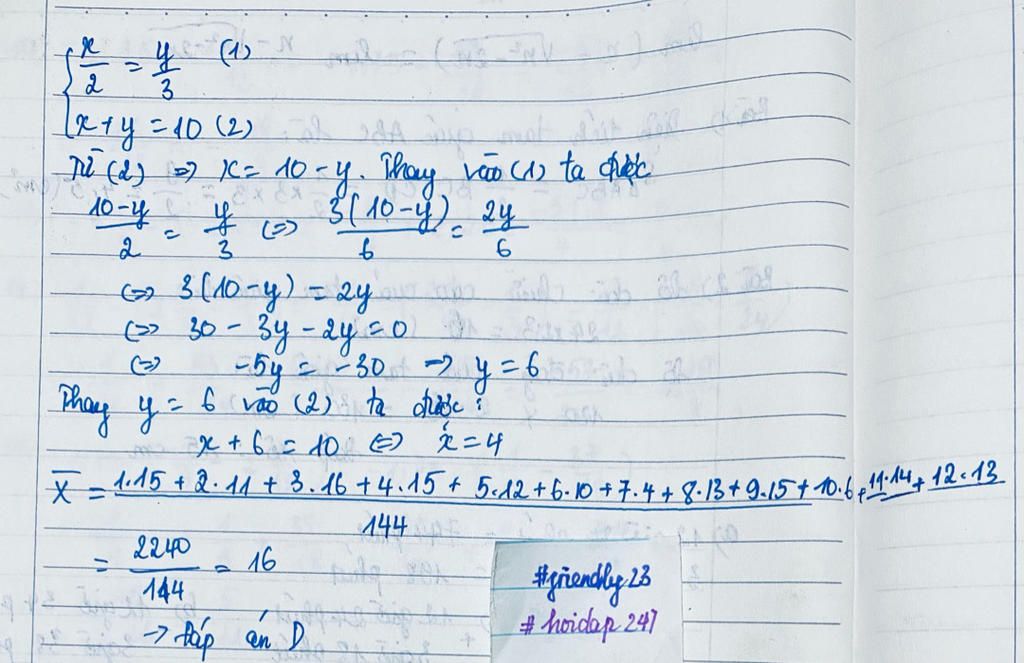 x/2 = y/3 (1)
x + y = 10 (2)
Từ (2) => x = 10 - y. Thay vào (1) ta được
(10-y)/2 = y/3 <=> 3(10-y)/6 = 2y/6
<=> 3(10-y) = 2y
<=> 30 - 3y - 2y = 0
<=> -5y = -30 → y = 6
Thay y = 6 vào (2) ta được:
x + 6 = 10 <=> x = 4
X̄ = (1.15 + 2.11 + 3.16 + 4.15 + 5.12 + 6.10 + 7.4 + 8.13 + 9.15 + 10.6 + 11.14 + 12.13)/144
= 2240/144 = 16
→ Đáp án D
#friendly23
#hoidap247